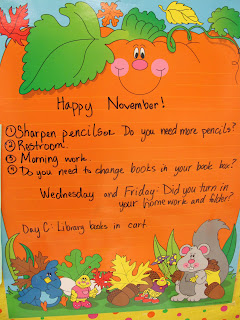 Happy November!
① Sharpen pencils or Do you need more pencils?
② Restroom.
③ Morning work.
④ Do you need to change books in your book box?
Wednesday and Friday: Did you turn in
your homework and folder?
Day C: Library books in cart